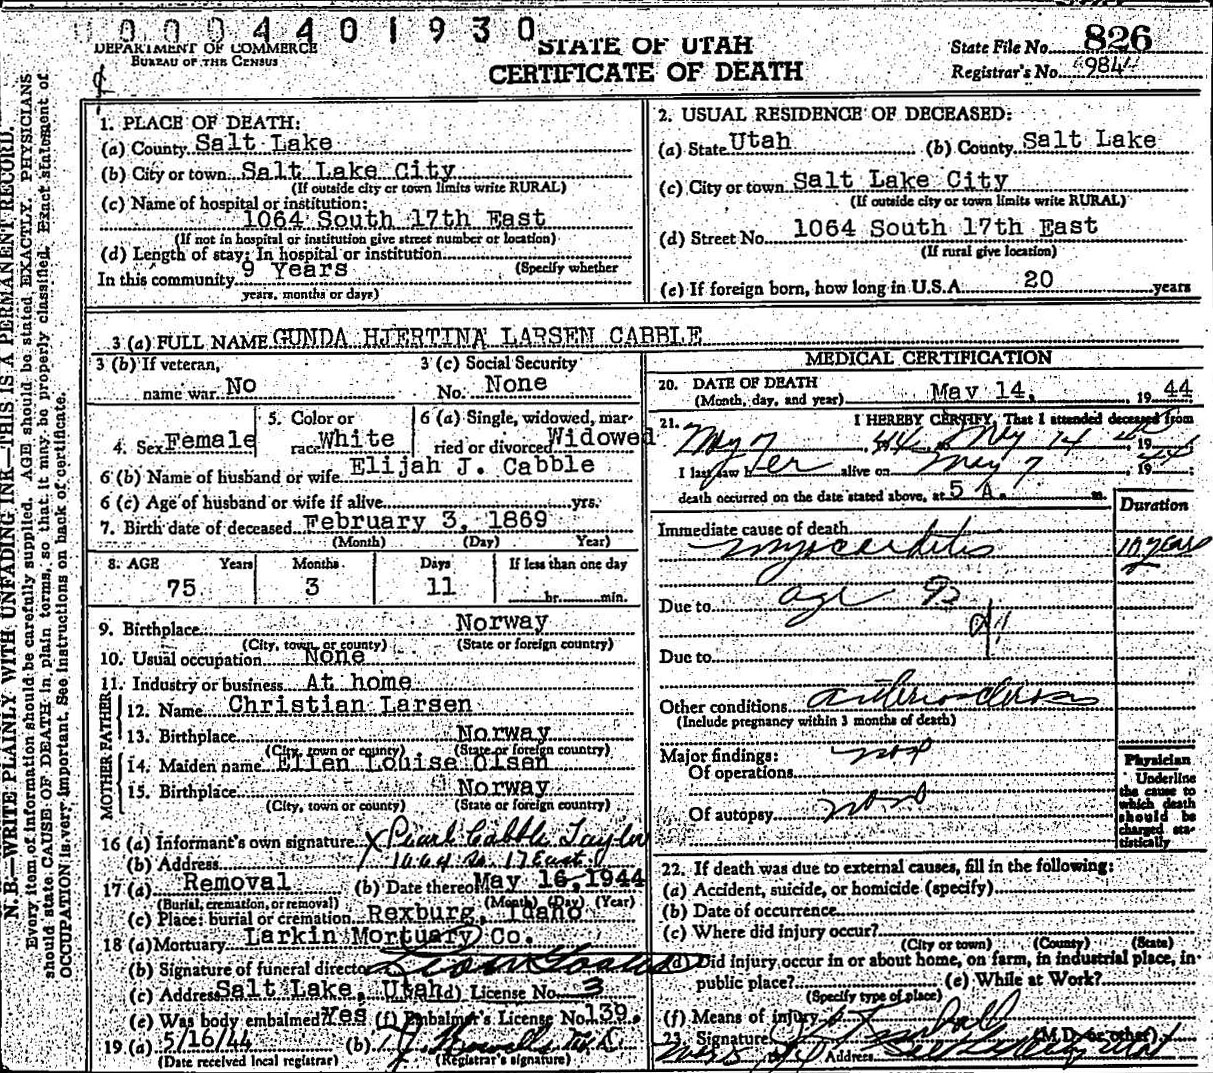 0004401930
DEPARTMENT OF COMMERCE
BUREAU OF THE CENSUS
STATE OF UTAH
CERTIFICATE OF DEATH
State File No. 826
Registrar's No. 984
N. B.—WRITE PLAINLY WITH UNFADING INK—THIS IS A PERMANENT RECORD.
Every item of information should be carefully supplied. AGE should be stated EXACTLY. PHYSICIANS
should state CAUSE OF DEATH in plain terms, so that it may be properly classified. Exact statement of
OCCUPATION is very important. See instructions on back of certificate.
1. PLACE OF DEATH:
(a) County Salt Lake
(b) City or town Salt Lake City
(If outside city or town limits write RURAL)
(c) Name of hospital or institution:
1064 South 17th East
(If not in hospital or institution give street number or location)
(d) Length of stay: In hospital or institution
(Specify whether
In this community 9 Years
years, months or days)
2. USUAL RESIDENCE OF DECEASED:
(a) State Utah (b) County Salt Lake
(c) City or town Salt Lake City
(If outside city or town limits write RURAL)
(d) Street No. 1064 South 17th East
(If rural give location)
(e) If foreign born, how long in U.S.A. 20 years
3 (a) FULL NAME GUNDA HJERTINA LARSEN CABBLE
3 (b) If veteran,
name war No
3 (c) Social Security
No. None
4. Sex Female
5. Color or
race White
6 (a) Single, widowed, mar-
ried or divorced Widowed
6 (b) Name of husband or wife Elijah J. Cabble
6 (c) Age of husband or wife if alive yrs.
7. Birth date of deceased February 3, 1869
(Month) (Day) Year)
8. AGE Years Months Days If less than one day
75 3 11 hr. min.
9. Birthplace Norway
(City, town, or county) (State or foreign country)
10. Usual occupation None
11. Industry or business At home
FATHER
12. Name Christian Larsen
13. Birthplace Norway
(City, town or county) (State or foreign country)
MOTHER
14. Maiden name Ellen Louise Olsen
15. Birthplace Norway
(City, town or county) (State or foreign country)
16 (a) Informant's own signature x Pearl Cabble Taylor
(b) Address 1064 So. 17 East
17 (a) Removal (b) Date thereof May 16, 1944
(Burial, cremation, or removal) (Month) (Day) (Year)
(c) Place: burial or cremation Rexburg, Idaho
18 (a) Mortuary Larkin Mortuary Co.
(b) Signature of funeral director
(c) Address Salt Lake, Utah (d) License No. 3
(e) Was body embalmed? Yes (f) Embalmer's License No. 139
19 (a) 5/16/44 (b)
(Date received local registrar) (Registrar's signature)
MEDICAL CERTIFICATION
20. DATE OF DEATH May 14, 1944
(Month, day, and year)
21. I HEREBY CERTIFY, That I attended deceased from
May 7 44 May 14 19 44
I last saw her alive on May 7, 1944
death occurred on the date stated above, at 5 A. m.
Duration
Immediate cause of death
myocarditis 10 years
Due to age
Due to
Other conditions
(Include pregnancy within 3 months of death)
Major findings:
Of operations
Of autopsy
Physician
Underline
the cause to
which death
should be
charged sta-
tistically
22. If death was due to external causes, fill in the following:
(a) Accident, suicide, or homicide (specify)
(b) Date of occurrence
(c) Where did injury occur?
(City or town) (County) (State)
(d) Did injury occur in or about home, on farm, in industrial place, in
public place? (e) While at Work?
(Specify type of place)
(f) Means of injury
23. Signature Kimball (M.D. or other)
Address